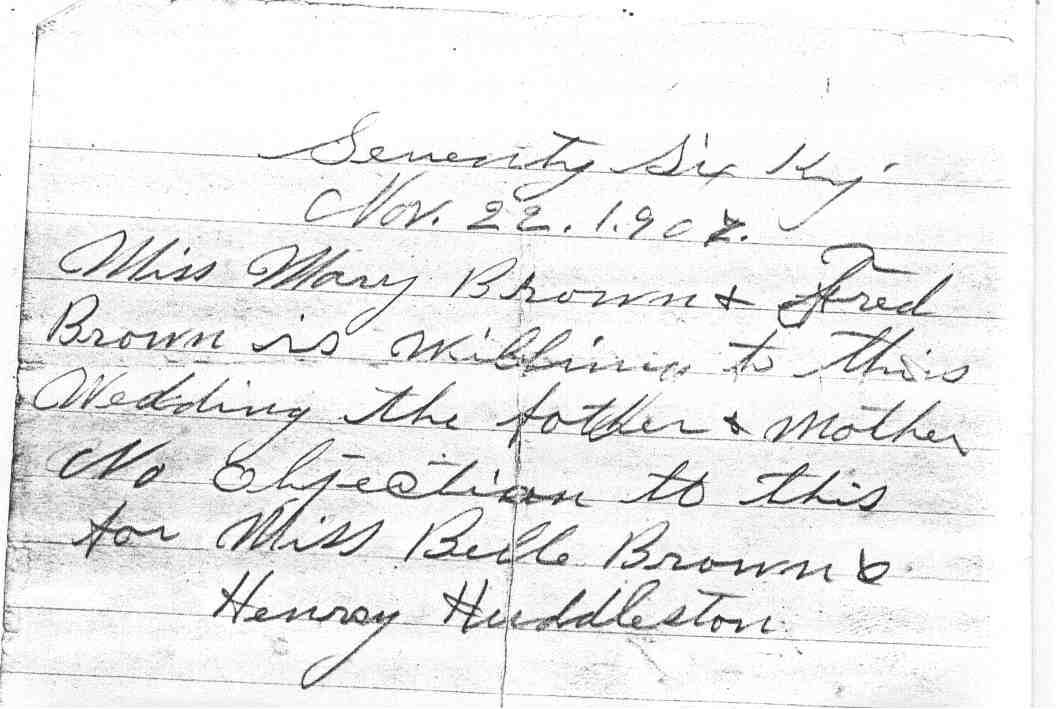 Seventy Six Ky.
Nov. 22. 1.907.
Miss Mary Brown & Fred
Brown is willing to this
Wedding the father & mother
No Objection to this
for Miss Belle Brown &
Henry Huddleston